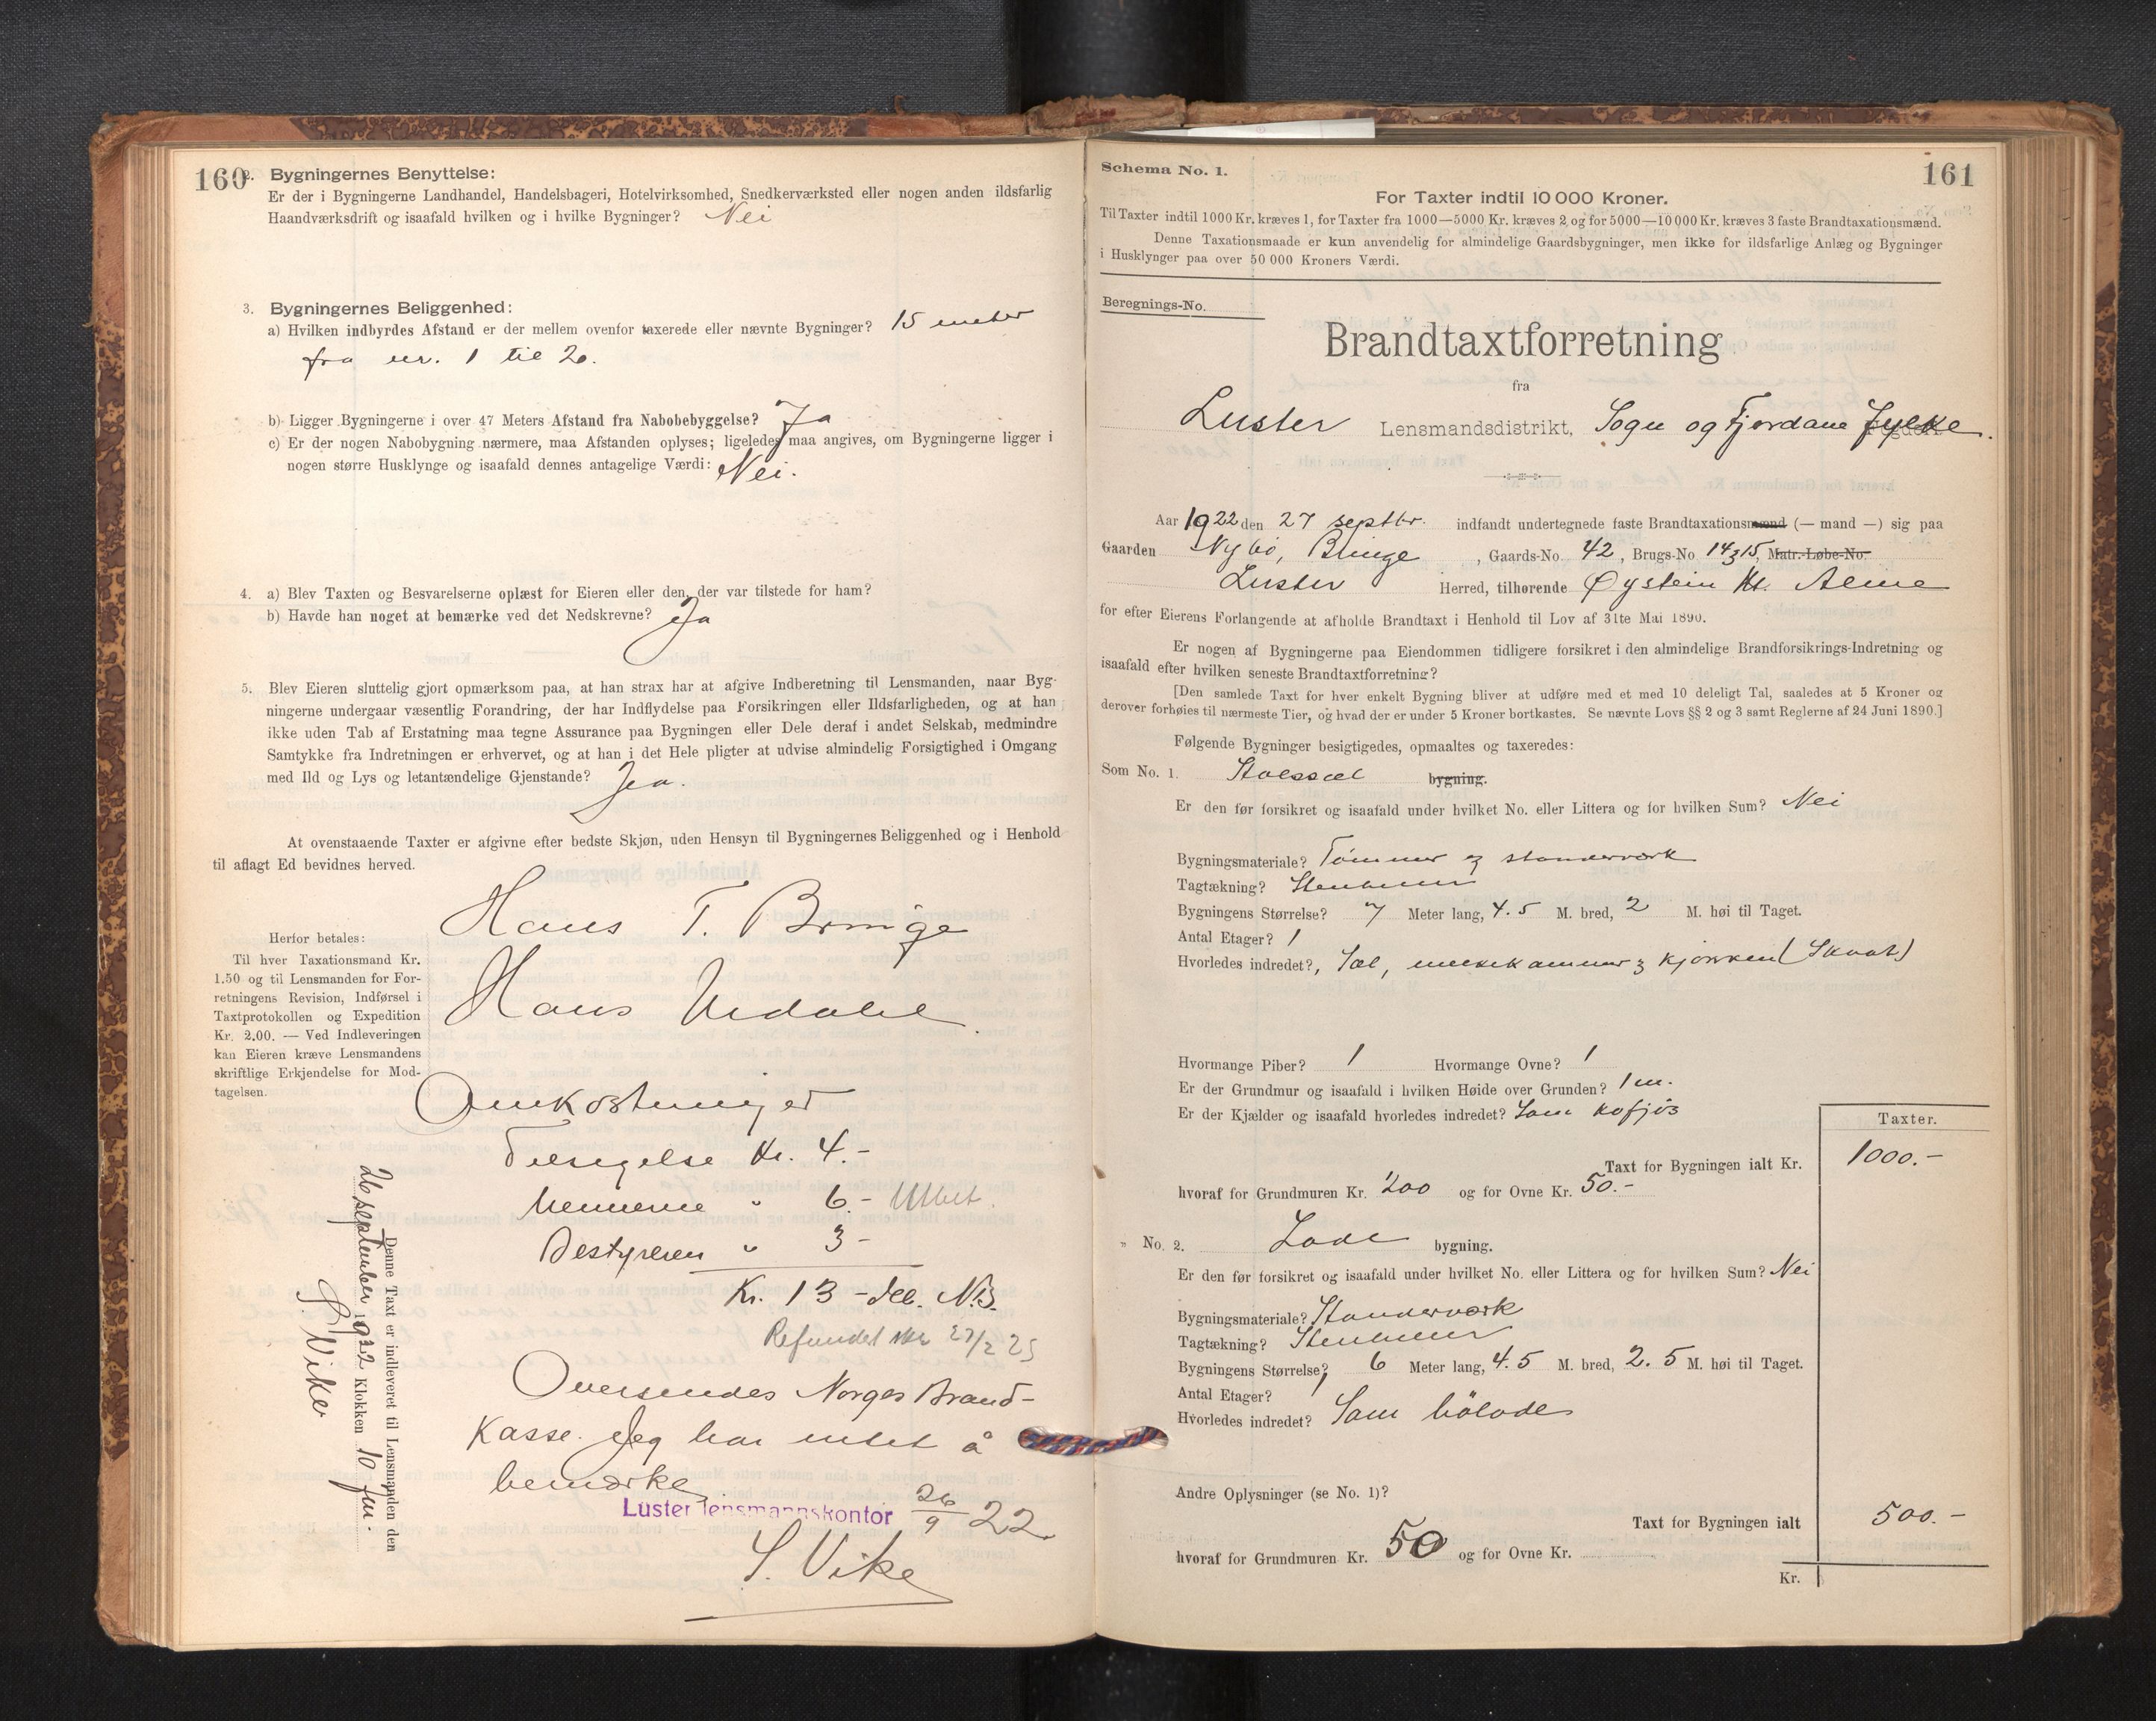 160
2. Bygningernes Benyttelse:
Er der i Bygningerne Landhandel, Handelsbageri, Hotelvirksomhed, Snedkerværksted eller nogen anden ildsfarlig
Haandværksdrift og isaafald hvilken og i hvilke Bygninger? Nei
3. Bygningernes Beliggenhed:
a) Hvilken indbyrdes Afstand er der mellem ovenfor taxerede eller nævnte Bygninger? 15 meter
fra nr. 1 til 2.
b) Ligger Bygningerne i over 47 Meters Afstand fra Nabobebyggelse? Ja
c) Er der nogen Nabobygning nærmere, maa Afstanden oplyses; ligeledes maa angives, om Bygningerne ligger i
nogen større Husklynge og isaafald dennes antagelige Værdi: Nei.
4. a) Blev Taxten og Besvarelserne oplæst for Eieren eller den, der var tilstede for ham?
b) Havde han noget at bemærke ved det Nedskrevne? Ja
5. Blev Eieren sluttelig gjort opmærksom paa, at han strax har at afgive Indberetning til Lensmanden, naar Byg-
ningerne undergaar væsentlig Forandring, der har Indflydelse paa Forsikringen eller Ildsfarligheden, og at han
ikke uden Tab af Erstatning maa tegne Assurance paa Bygningen eller Dele deraf i andet Selskab, medmindre
Samtykke fra Indretningen er erhvervet, og at han i det Hele pligter at udvise almindelig Forsigtighed i Omgang
med Ild og Lys og letantændelige Gjenstande? Ja.
At ovenstaaende Taxter er afgivne efter bedste Skjøn, uden Hensyn til Bygningernes Beliggenhed og i Henhold
til aflagt Ed bevidnes herved.
Hans T. Bringe
Hans Urdahl.
Herfor betales:
Til hver Taxationsmand Kr.
1.50 og til Lensmanden for For-
retningens Revision, Indførsel i
Taxtprotokollen og Expedition
Kr. 2.00. — Ved Indleveringen
kan Eieren kræve Lensmandens
skriftlige Erkjendelse for Mod-
tagelsen.
Omkostninger
Tilsigelse Kr. 4.-
Mennene " 6.-
Bestyreren " 3-
Kr. 13 - deb. N.B.
Refundet 27/2 23
Oversendes Norges Brand-
kasse. Jeg har intet å
bemærke.
Luster lensmannskontor 26/9 22.
S. Vike
Denne Taxt er indleveret til Lensmanden den
26 september 1922 Klokken 10 fm.
S. Vike
Schema No. 1.
161
For Taxter indtil 10 000 Kroner.
Til Taxter indtil 1000 Kr. kræves 1, for Taxter fra 1000—5000 Kr. kræves 2 og for 5000—10 000 Kr. kræves 3 faste Brandtaxationsmænd.
Denne Taxationsmaade er kun anvendelig for almindelige Gaardsbygninger, men ikke for ildsfarlige Anlæg og Bygninger
i Husklynger paa over 50 000 Kroners Værdi.
Beregnings-No.
Brandtaxtforretning
fra
Luster Lensmandsdistrikt, Sogn og Fjordane fylke.
Aar 1922 den 27 septbr. indfandt undertegnede faste Brandtaxationsmænd (— mand —) sig paa
Gaarden Nybø, Bringe, Gaards-No. 42, Brugs-No. 14 & 15, Matr.-Løbe-No.
Luster Herred, tilhørende Øystein Kr. Alme
for efter Eierens Forlangende at afholde Brandtaxt i Henhold til Lov af 31te Mai 1890.
Er nogen af Bygningerne paa Eiendommen tidligere forsikret i den almindelige Brandforsikrings-Indretning og
isaafald efter hvilken seneste Brandtaxtforretning?
[Den samlede Taxt for hver enkelt Bygning bliver at udføre med et med 10 deleligt Tal, saaledes at 5 Kroner og
derover forhøies til nærmeste Tier, og hvad der er under 5 Kroner bortkastes. Se nævnte Lovs §§ 2 og 3 samt Reglerne af 24 Juni 1890.]
Følgende Bygninger besigtigedes, opmaaltes og taxeredes:
Som No. 1. Stølssel bygning.
Er den før forsikret og isaafald under hvilket No. eller Littera og for hvilken Sum? Nei
Bygningsmateriale? Tømmer og standerverk
Tagtækning? Stenheller
Bygningens Størrelse? 7 Meter lang, 4.5 M. bred, 2 M. høi til Taget.
Antal Etager? 1
Hvorledes indredet?, Sel, melkekammer & kjøkken (Skaat)
Hvormange Piber? 1 Hvormange Ovne? 1
Er der Grundmur og isaafald i hvilken Høide over Grunden? 1 m.
Er der Kjælder og isaafald hvorledes indredet? Som kofjøs
Taxter.
Taxt for Bygningen ialt Kr. 1000.-
hvoraf for Grundmuren Kr. 200 og for Ovne Kr. 50.-
" No. 2. Lade bygning.
Er den før forsikret og isaafald under hvilket No. eller Littera og for hvilken Sum? Nei
Bygningsmateriale? Standerverk
Tagtækning? Stenheller
Bygningens Størrelse? 6 Meter lang, 4.5 M. bred, 2.5 M. høi til Taget.
Antal Etager? 1
Hvorledes indredet? Som hölade
Andre Oplysninger (se No. 1)?
Taxt for Bygningen ialt 500.-
hvoraf for Grundmuren Kr. 50 og for Ovne Kr.
Kr.